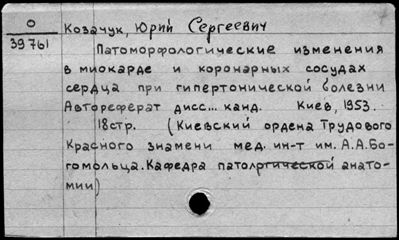 О
39761
Козачук, Юрий Сергеевич
Патоморфологические изменения
в миокарде и коронарных сосудах
сердца при гипертонической болезни
Автореферат дисс... канд. Киев, 1953.
18стр. (Киевский ордена Трудового
Красного знамени мед. ин-т им. А.А.Бо-
гомольца. Кафедра патологической анато-
мии)